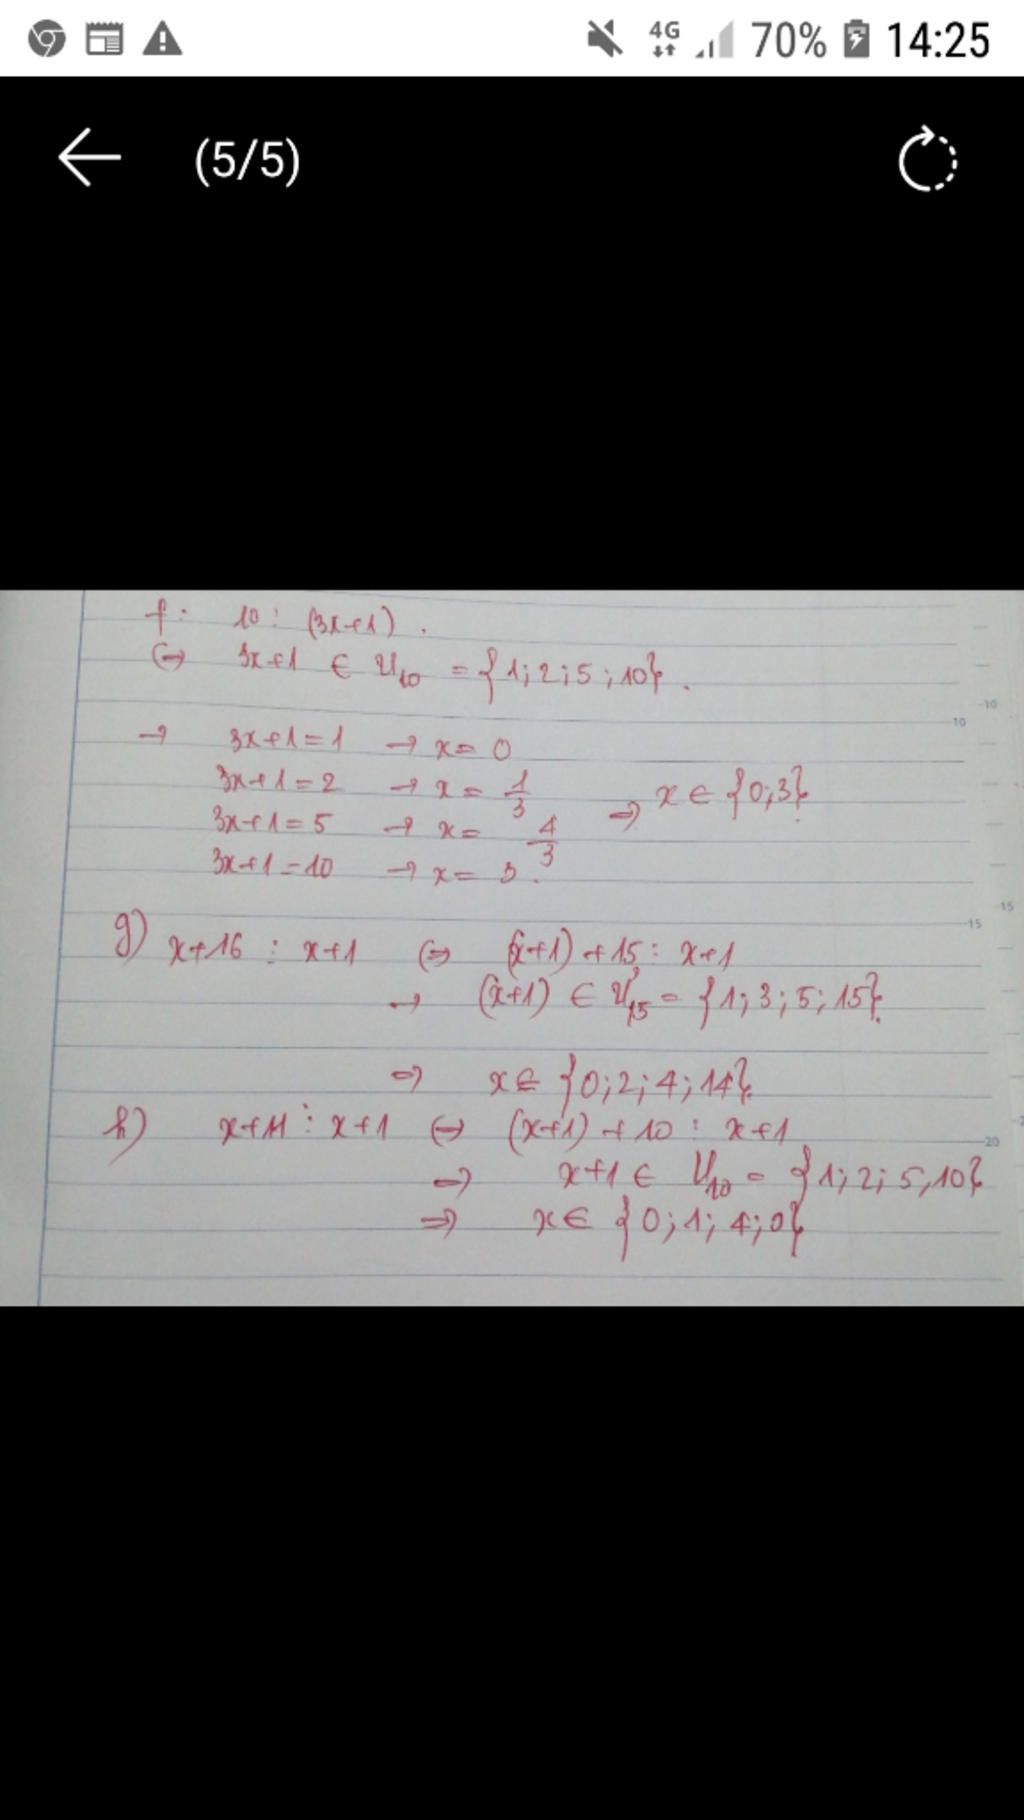 4G 70% 14:25
(5/5)
f: 10 ⋮ (3x+1).
⇔ 3x+1 ∈ Ư₁₀ = {1; 2; 5; 10}.
→ 3x+1 = 1 → x = 0
3x+1 = 2 → x = 1/3
⇒ x ∈ {0; 3}.
3x+1 = 5 → x = 4/3
3x+1 = 10 → x = 3.
g) x+16 ⋮ x+1 ⇔ (x+1) + 15 ⋮ x+1
→ (x+1) ∈ Ư₁₅ = {1; 3; 5; 15}.
⇒ x ∈ {0; 2; 4; 14}.
h) x+11 ⋮ x+1 ⇔ (x+1) + 10 ⋮ x+1
⇒ x+1 ∈ Ư₁₀ = {1; 2; 5, 10}
⇒ x ∈ {0; 1; 4; 0}
10
10
15
15
20